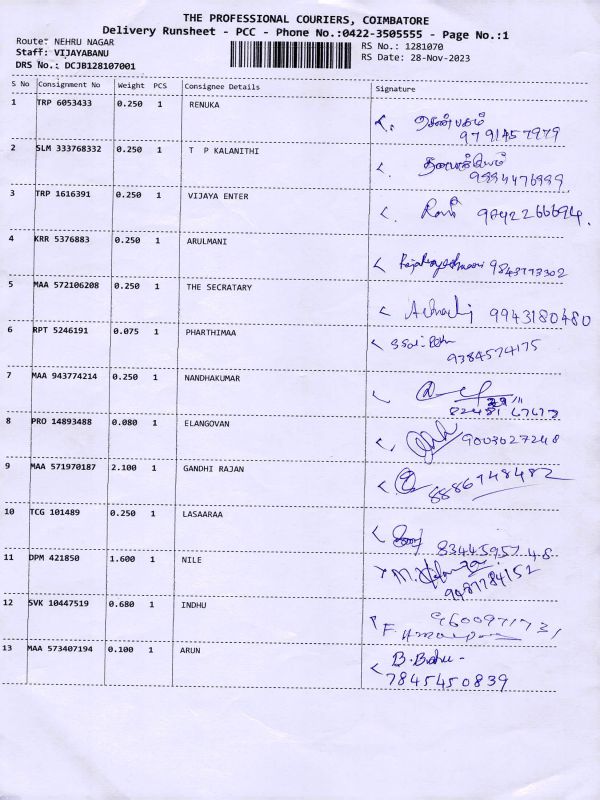 THE PROFESSIONAL COURIERS, COIMBATORE
Delivery Runsheet - PCC - Phone No.:0422-3505555 - Page No.:1
Route: NEHRU NAGAR
Staff: VIJAYABANU
DRS No.: DCJB128107001
RS No.: 1281070
RS Date: 28-Nov-2023
S No Consignment No Weight PCS Consignee Details Signature
1 TRP 6053433 0.250 1 RENUKA
செண்பகம்
9791457979
2 SLM 333768332 0.250 1 T P KALANITHI
3 TRP 1616391 0.250 1 VIJAYA ENTER
9842266694
4 KRR 5376883 0.250 1 ARULMANI
5 MAA 572106208 0.250 1 THE SECRATARY
9943180480
6 RPT 5246191 0.075 1 PHARTHIMAA
9384574175
7 MAA 943774214 0.250 1 NANDHAKUMAR
8 PRO 14893488 0.080 1 ELANGOVAN
9003027248
9 MAA 571970187 2.100 1 GANDHI RAJAN
8886748482
10 TCG 101489 0.250 1 LASAARAA
8344595748
11 DPM 421850 1.600 1 NILE
12 SVK 10447519 0.680 1 INDHU
9600971731
13 MAA 573407194 0.100 1 ARUN
B. Babu -
7845450839